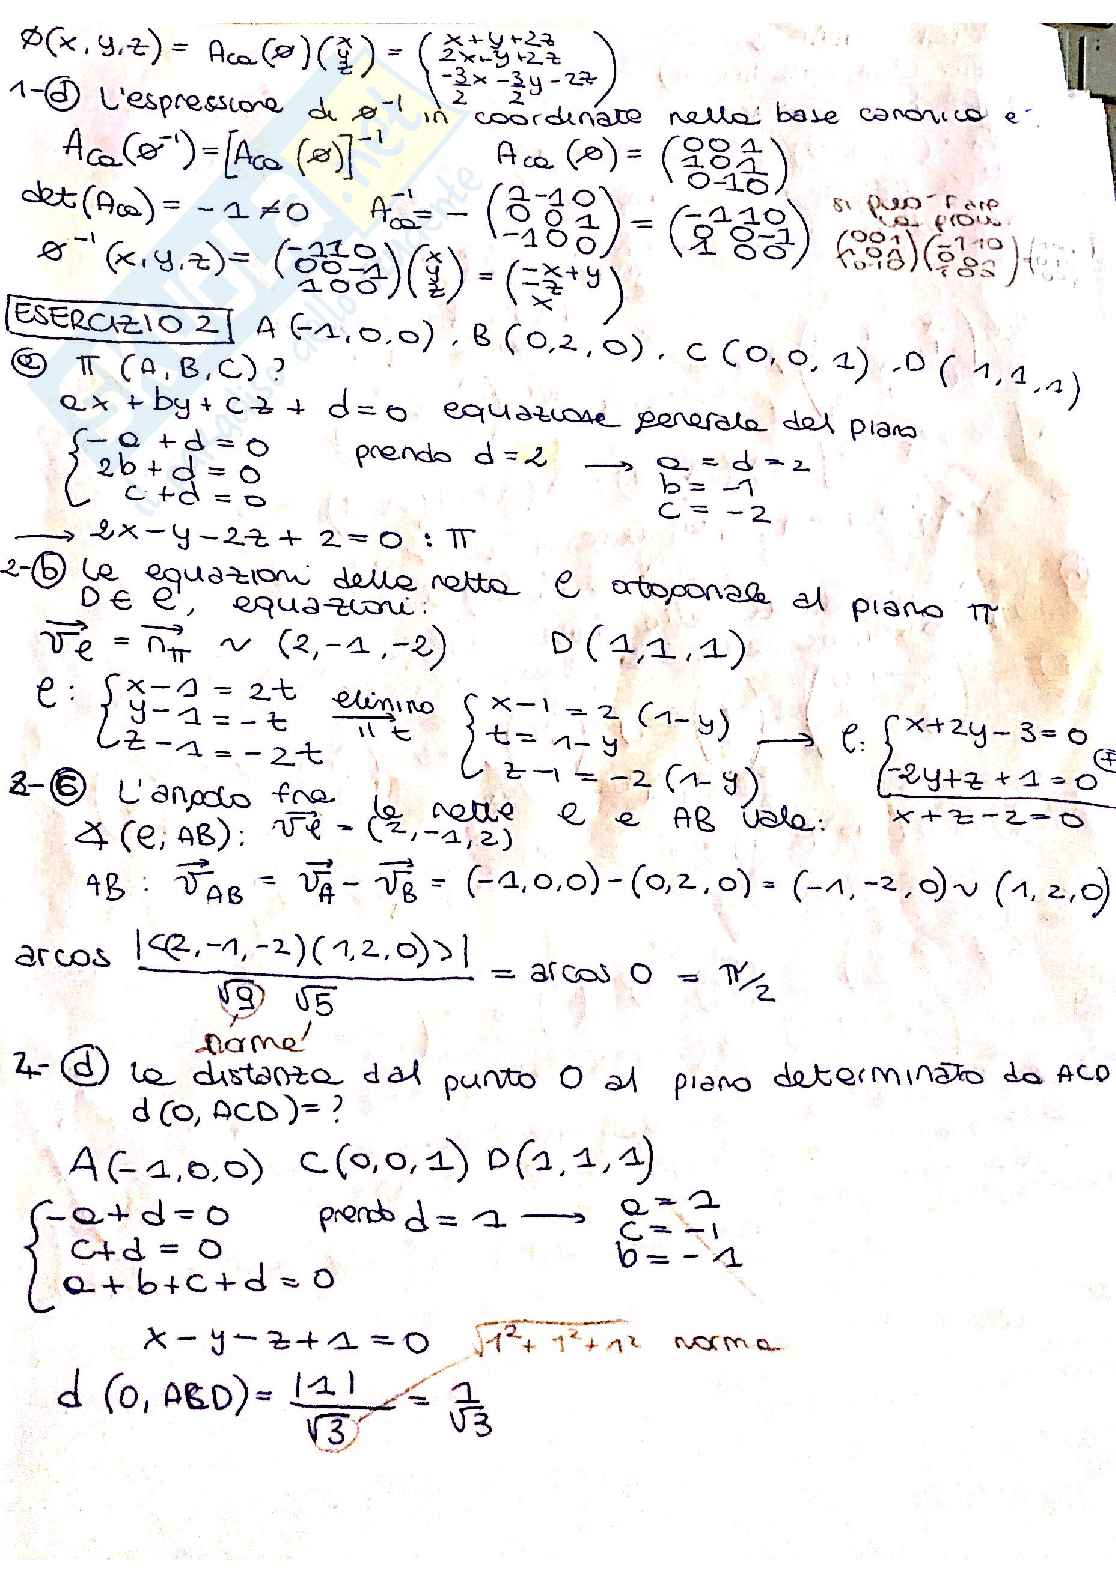 Ø(x, y, z) = Aca(ø)(x y z) = (x+y+2z 2x-y+2z -3/2x -3/2y -2z)
1-(d) L'espressione di ø⁻¹ in coordinate nella base canonica è:
Aca(ø⁻¹) = [Aca(ø)]⁻¹ Aca(ø) = (0 0 1 1 0 1 0 -1 0)
det(Aca) = -1 ≠ 0 Aca⁻¹ = -(1 -1 0 0 0 1 -1 0 0) = (-1 1 0 0 0 -1 1 0 0) si può fare la prova
ø⁻¹(x, y, z) = (-1 1 0 0 0 -1 1 0 0)(x y z) = (-x+y -z x)
ESERCIZIO 2 A(-1,0,0), B(0,2,0), C(0,0,1), D(1,1,1)
(a) π(A, B, C)?
ax + by + cz + d = 0 equazione generale del piano
{-a + d = 0 prendo d = 2 → a = d = 2
2b + d = 0 b = -1
c + d = 0 c = -2
→ 2x - y - 2z + 2 = 0 : π
2-(b) Le equazioni della retta ℓ ortogonale al piano π
D ∈ ℓ, equazioni:
vℓ = nπ ~ (2, -1, -2) D(1, 1, 1)
ℓ: {x - 1 = 2t elimino il t {x - 1 = 2(1-y) → ℓ: {x + 2y - 3 = 0
y - 1 = -t t = 1 - y
z - 1 = -2t z - 1 = -2(1-y) -2y + z + 1 = 0 (+)
x + z - 2 = 0
2-(c) L'angolo fra le rette ℓ e AB vale:
∡(ℓ, AB): vℓ = (2, -1, 2)
AB: vAB = vA - vB = (-1,0,0) - (0,2,0) = (-1,-2,0) ~ (1,2,0)
arcos |<(2,-1,-2)(1,2,0)>| / √9 √5 = arcos 0 = π/2
norme
2-(d) La distanza dal punto O al piano determinato da ACD
d(O, ACD) = ?
A(-1,0,0) C(0,0,1) D(1,1,1)
{-a + d = 0 prendo d = 1 → a = 1
c + d = 0 c = -1
a + b + c + d = 0 b = -1
x - y - z + 1 = 0 √1²+1²+1² norma
d(O, ACD) = |1| / √3 = 1/√3